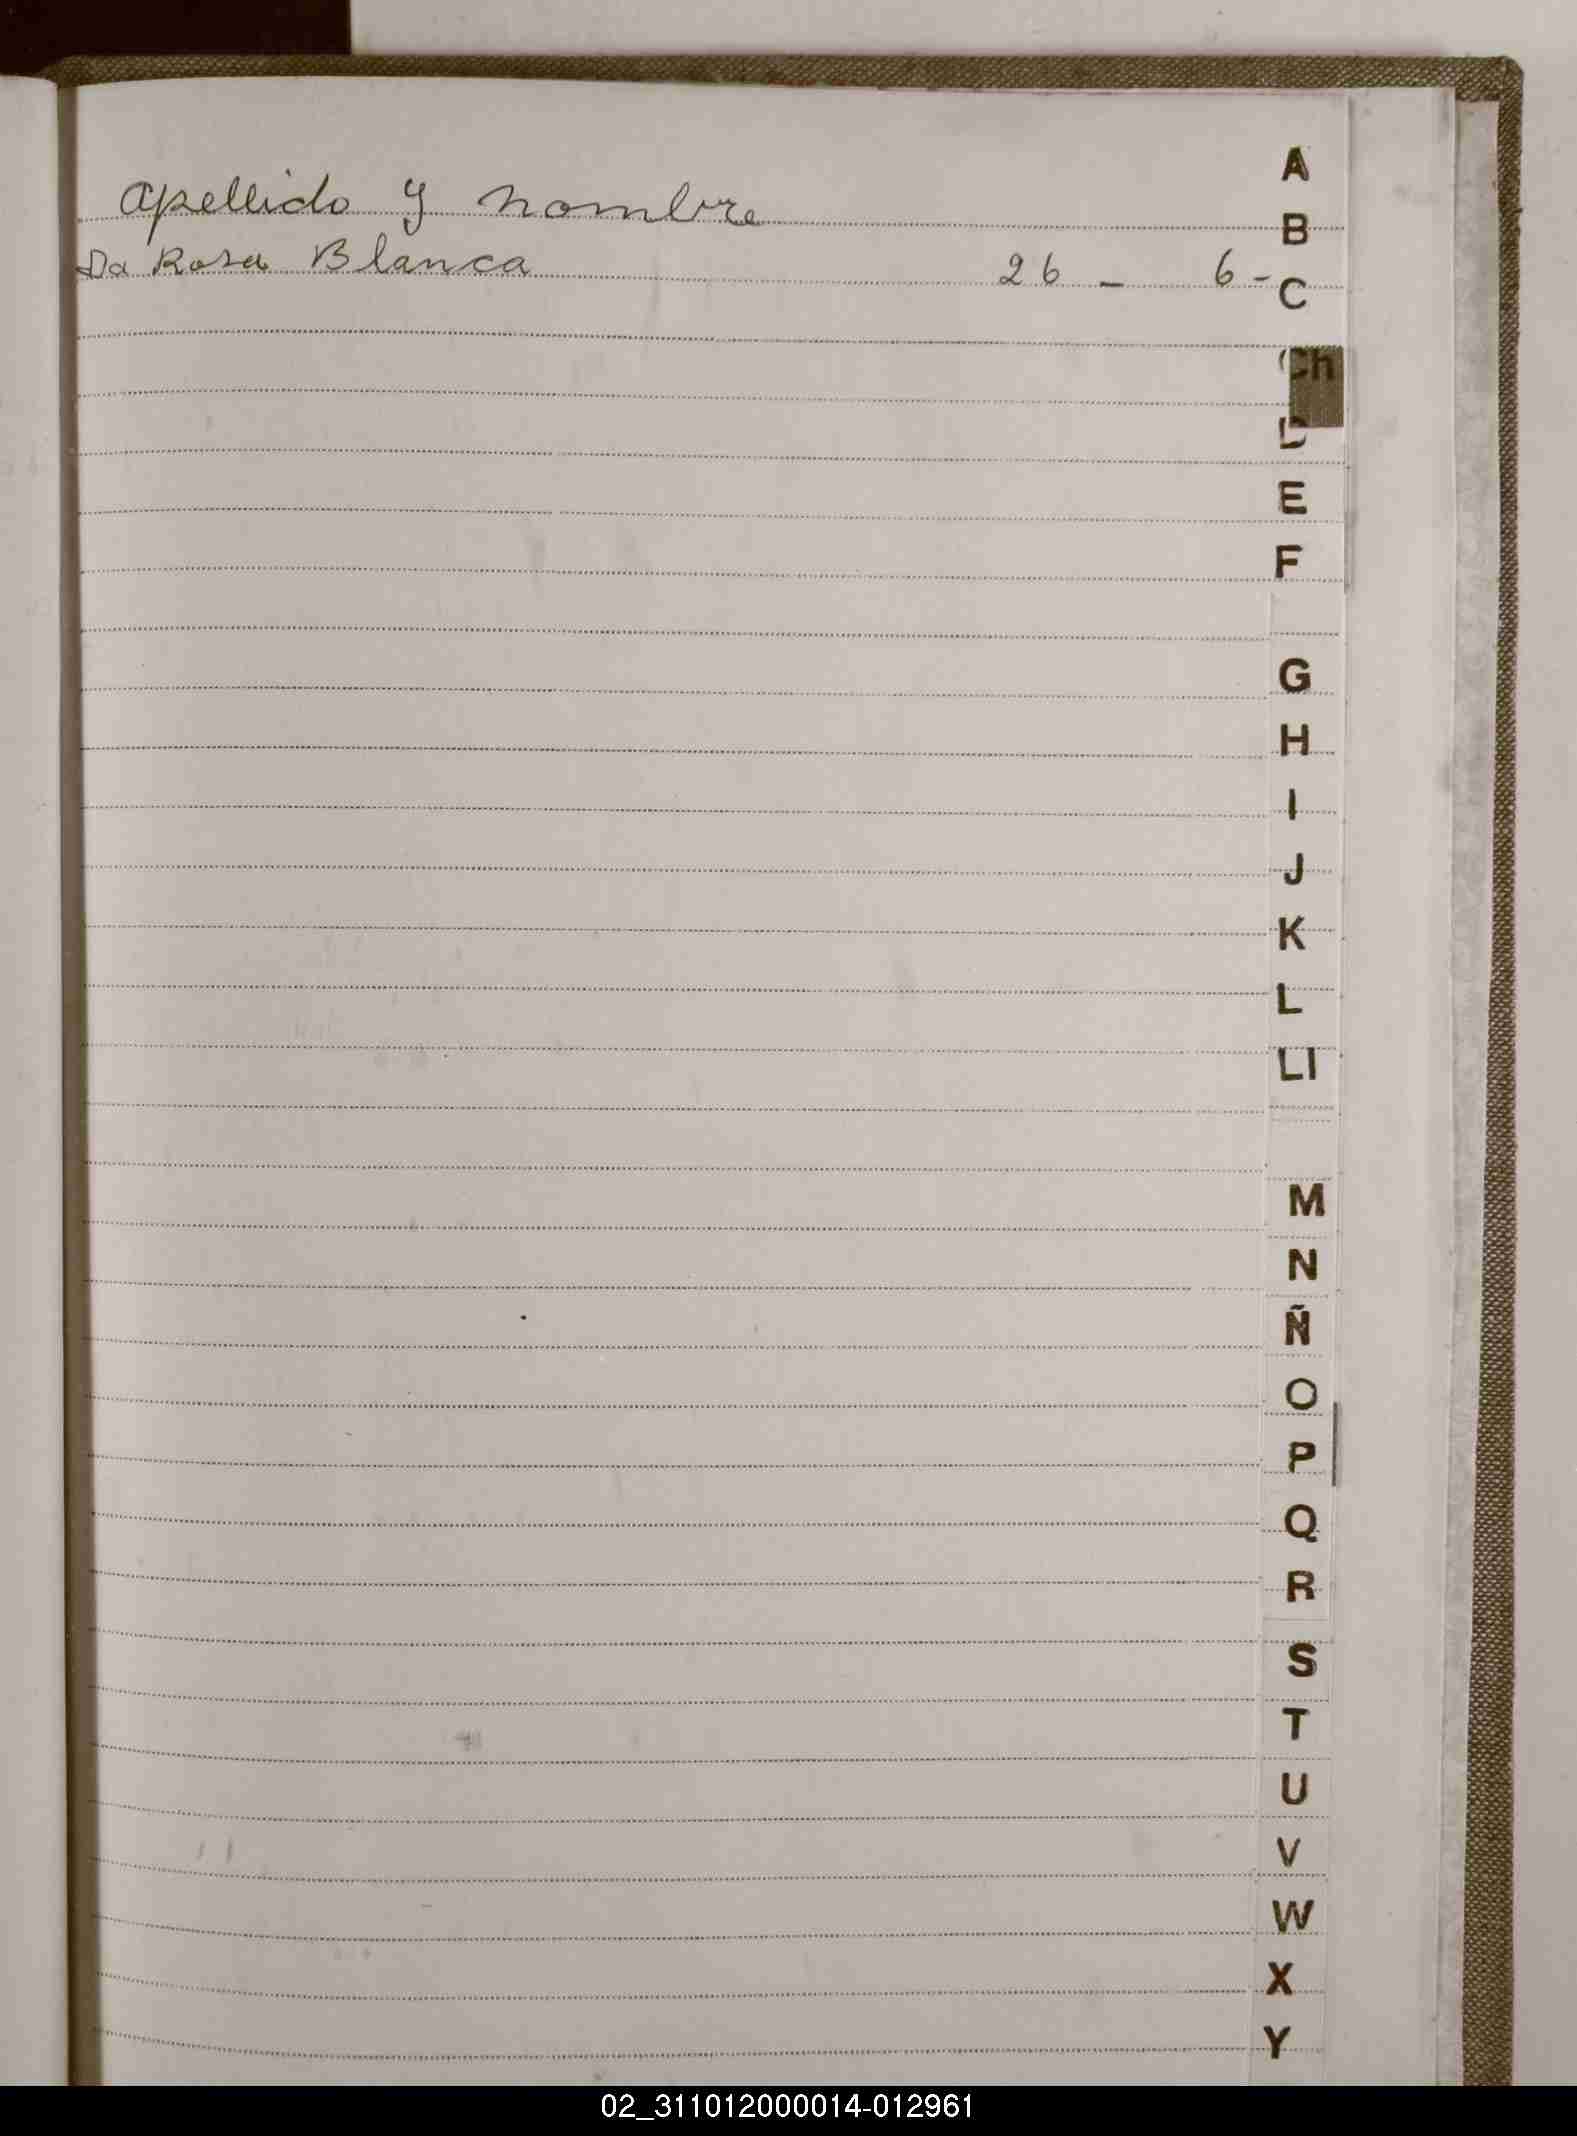 Apellido y nombre
Da Rosa Blanca 26 - 6 -
A
B
C
Ch
D
E
F
G
H
I
J
K
L
Ll
M
N
Ñ
O
P
Q
R
S
T
U
V
W
X
Y
02_311012000014-012961